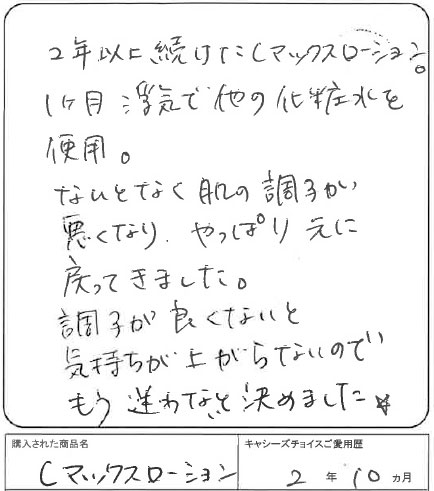 2年以上続けたCマックスローション。
1ヶ月浮気で他の化粧水を
使用。
なんとなく肌の調子が
悪くなり、やっぱり元に
戻ってきました。
調子が良くないと
気持ちが上がらないので
もう迷わないと決めました☆
購入された商品名
キャシーズチョイスご愛用歴
Cマックスローション
2年10ヵ月